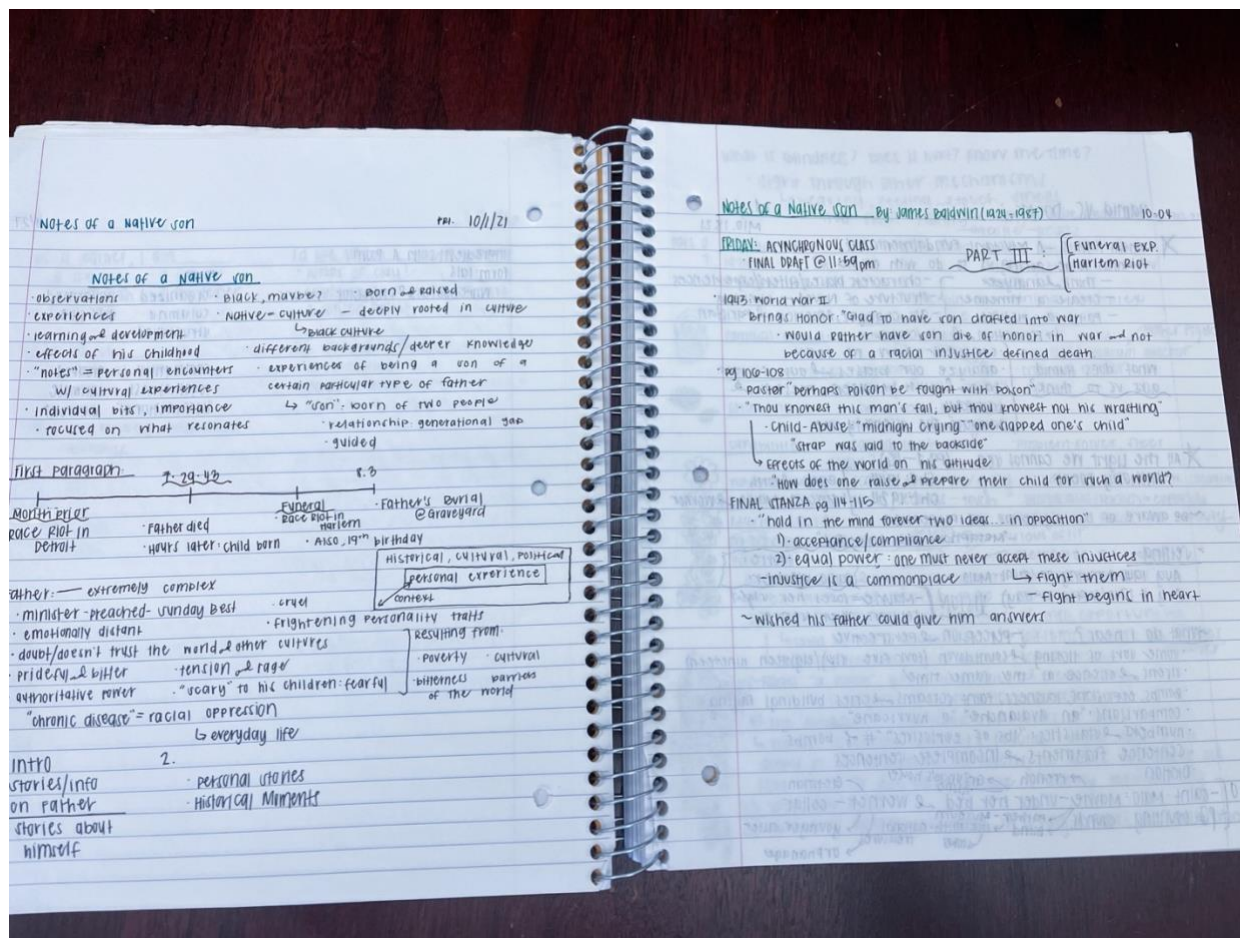 Notes of a Native son
FRI. 10/1/21
Notes of a Native son
· observations
· Black, maybe?
· Born & raised
· experiences
· Native-culture – deeply rooted in culture
· learning & development
↳ Black culture
· effects of his childhood
· different backgrounds/deeper knowledge
· "notes" = personal encounters
· experiences of being a son of a
w/ cultural experiences
certain particular type of father
· individual bits, importance
↳ "son": born of two people
· focused on what resonates
· relationship generational gap
· guided
First paragraph:
7-29-43
8.3
Month Prior
Race Riot in
Detroit
· Father died
· Hours later: child born
Funeral
· Race Riot in
Harlem
· Also, 19th birthday
· Father's Burial
@ Graveyard
Historical, cultural, political
personal experience
context
ather: — extremely complex
· minister - preached - Sunday Best
· cruel
· emotionally distant
· frightening personality traits
· doubt/doesn't trust the world & other cultures
· prideful & bitter
· tension & rage
authoritative power
· "scary" to his children: fearful
Resulting from:
· poverty · cultural
· bitterness barriers
of the world
"chronic disease" = racial oppression
↳ everyday life
intro
2.
stories/info
on father
· personal stories
· Historical Moments
stories about
himself
Notes of a Native son By: James Baldwin (1924-1987)
10.04
FRIDAY: ASYNCHRONOUS CLASS
· FINAL DRAFT @ 11:59pm
PART III:
Funeral EXP.
Harlem Riot
· 1943 World War II
Brings Honor "Glad to have son drafted into war
· would rather have son die of honor in war and not
because of a racial injustice defined death
· pg 106-108
Pastor "perhaps poison be fought with poison"
· "Thou knowest this man's fall, but thou knowest not his wrastling"
· Child-Abuse "midnight crying" "one slapped one's child"
"strap was laid to the backside"
↳ Effects of the world on his attitude
· "How does one raise & prepare their child for such a world?
FINAL STANZA pg 114-115
· "hold in the mind forever two ideas... in opposition"
1) · acceptance/compliance
2) · equal power : one must never accept these injustices
– injustice is a commonplace ↳ fight them
– fight begins in heart
~ wished his father could give him answers